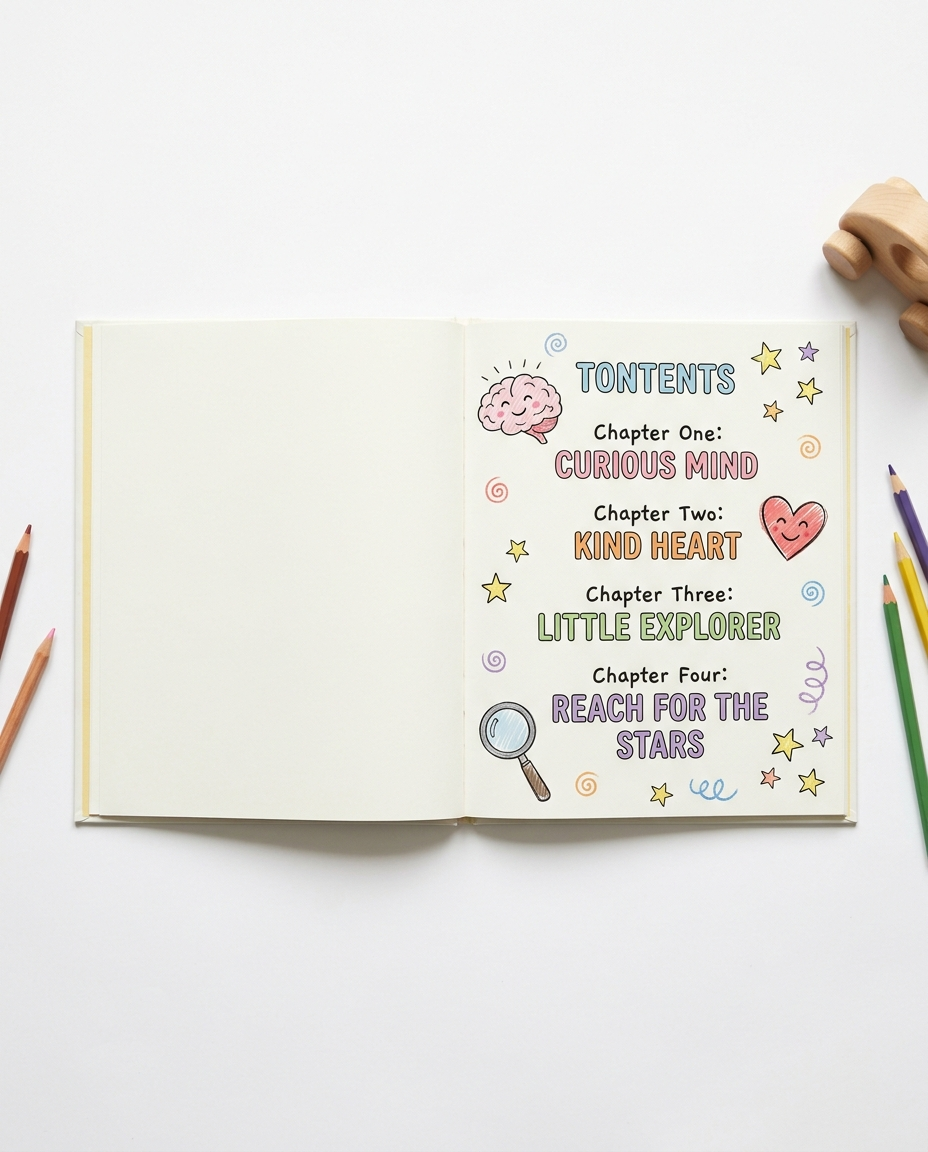 TONTENTS
Chapter One:
CURIOUS MIND
Chapter Two:
KIND HEART
Chapter Three:
LITTLE EXPLORER
Chapter Four:
REACH FOR THE
STARS